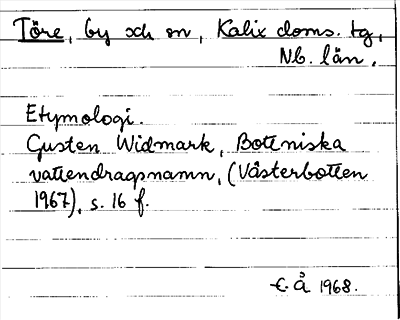 Töre, by och sn, Kalix doms. tg,
Nb. län.
Etymologi.
Gusten Widmark, Botniska
vattendragsnamn, (Västerbotten
1967), s. 16 f.
E.Å 1968.